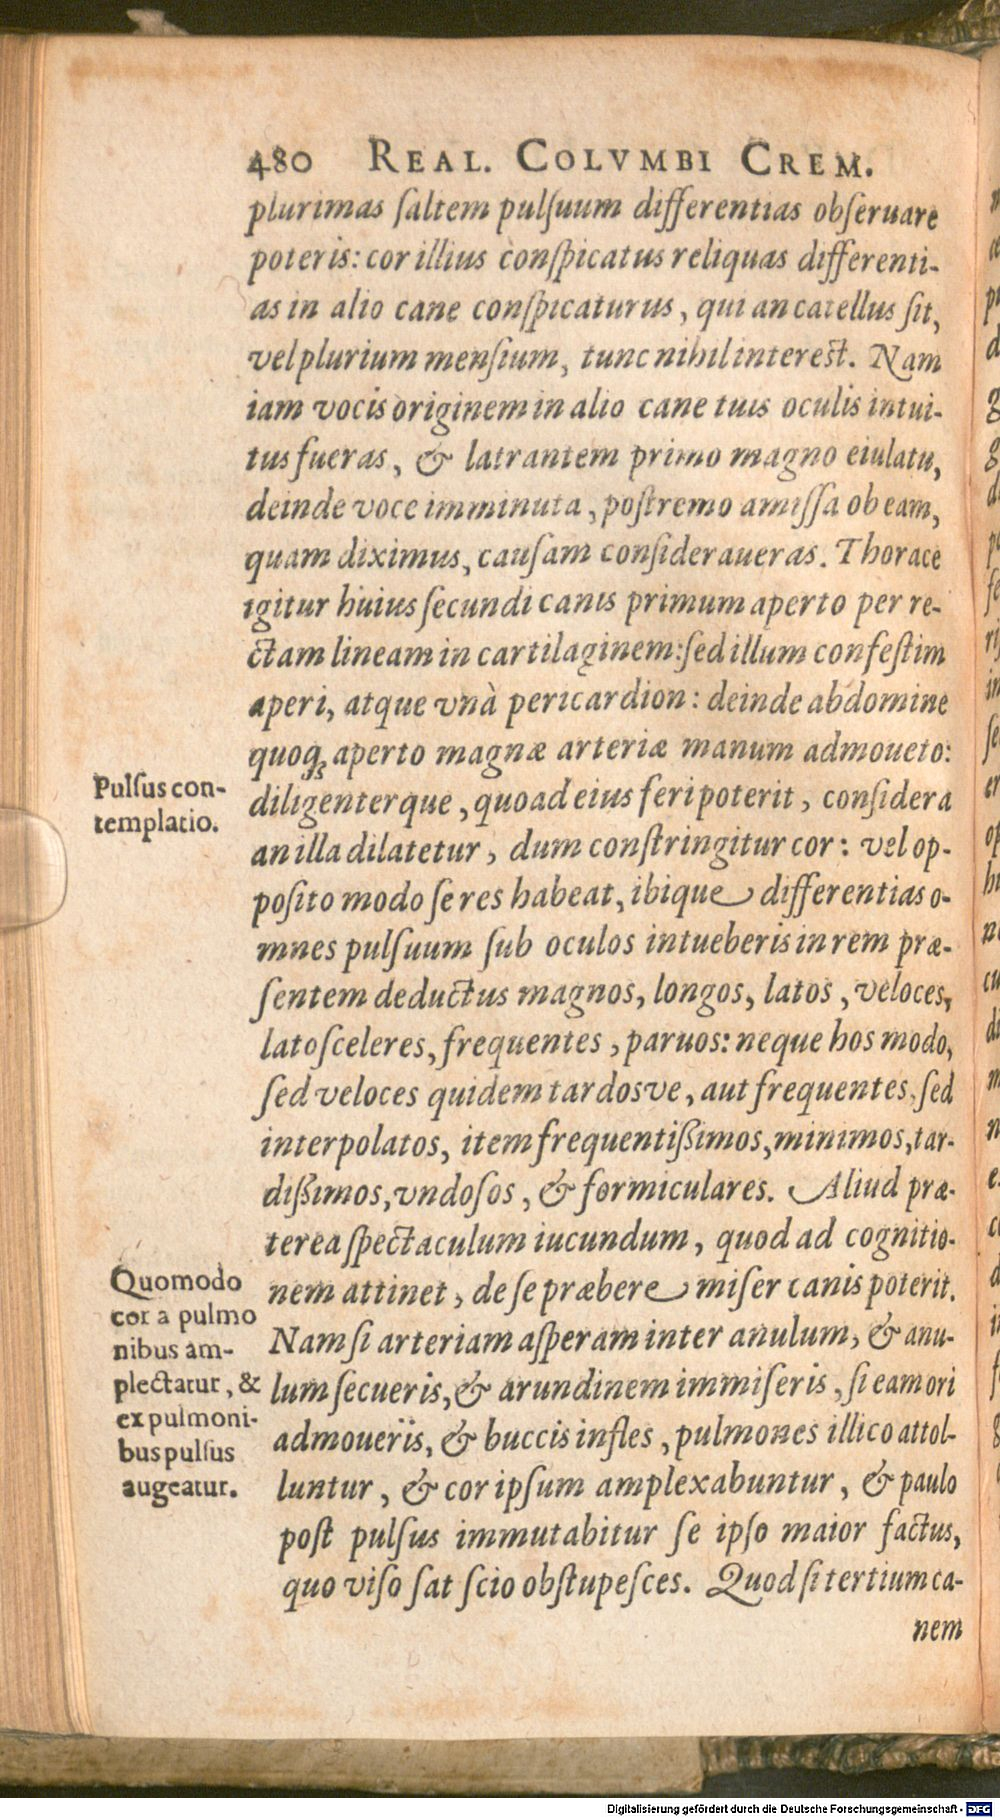 480 REAL. COLVMBI CREM.
plurimas ſaltem pulſuum differentias obſeruare
poteris: cor illius conſpicatus reliquas differenti-
as in alio cane conſpicaturus, qui an catellus ſit,
vel plurium menſium, tunc nihil intereſt. Nam
iam vocis originem in alio cane tuis oculis intui-
tus fueras, & latrantem primo magno eiulatu,
deinde voce imminuta, poſtremo amiſſa ob eam,
quam diximus, cauſam conſideraueras. Thorace
igitur huius ſecundi canis primum aperto per re-
ctam lineam in cartilaginem: ſed illum confeſtim
aperi, atque vnà pericardion: deinde abdomine
quoqꝫ aperto magnæ arteriæ manum admoueto:
Pulſus con-
templatio.
diligenterque, quoad eius feri poterit, conſidera
an illa dilatetur, dum conſtringitur cor: vel op-
poſito modo ſe res habeat, ibique differentias o-
mnes pulſuum ſub oculos intueberis in rem præ-
ſentem deductus magnos, longos, latos, veloces,
latoſceleres, frequentes, paruos: neque hos modo,
ſed veloces quidem tardosve, aut frequentes, ſed
interpolatos, item frequentißimos, minimos, tar-
dißimos, vndoſos, & formiculares. Aliud præ-
terea ſpectaculum iucundum, quod ad cognitio-
Quomodo
cor a pulmo
nibus am-
plectatur, &
ex pulmoni-
bus pulſus
augeatur.
nem attinet, de ſe præbere miſer canis poterit.
Nam ſi arteriam aſperam inter anulum, & anu-
lum ſecueris, & arundinem immiſeris, ſi eam ori
admoueris, & buccis infles, pulmones illico attol-
luntur, & cor ipſum amplexabuntur, & paulo
poſt pulſus immutabitur ſe ipſo maior factus,
quo viſo ſat ſcio obſtupeſces. Quod ſi tertium ca-
nem
Digitalisierung gefördert durch die Deutsche Forschungsgemeinschaft - DFG